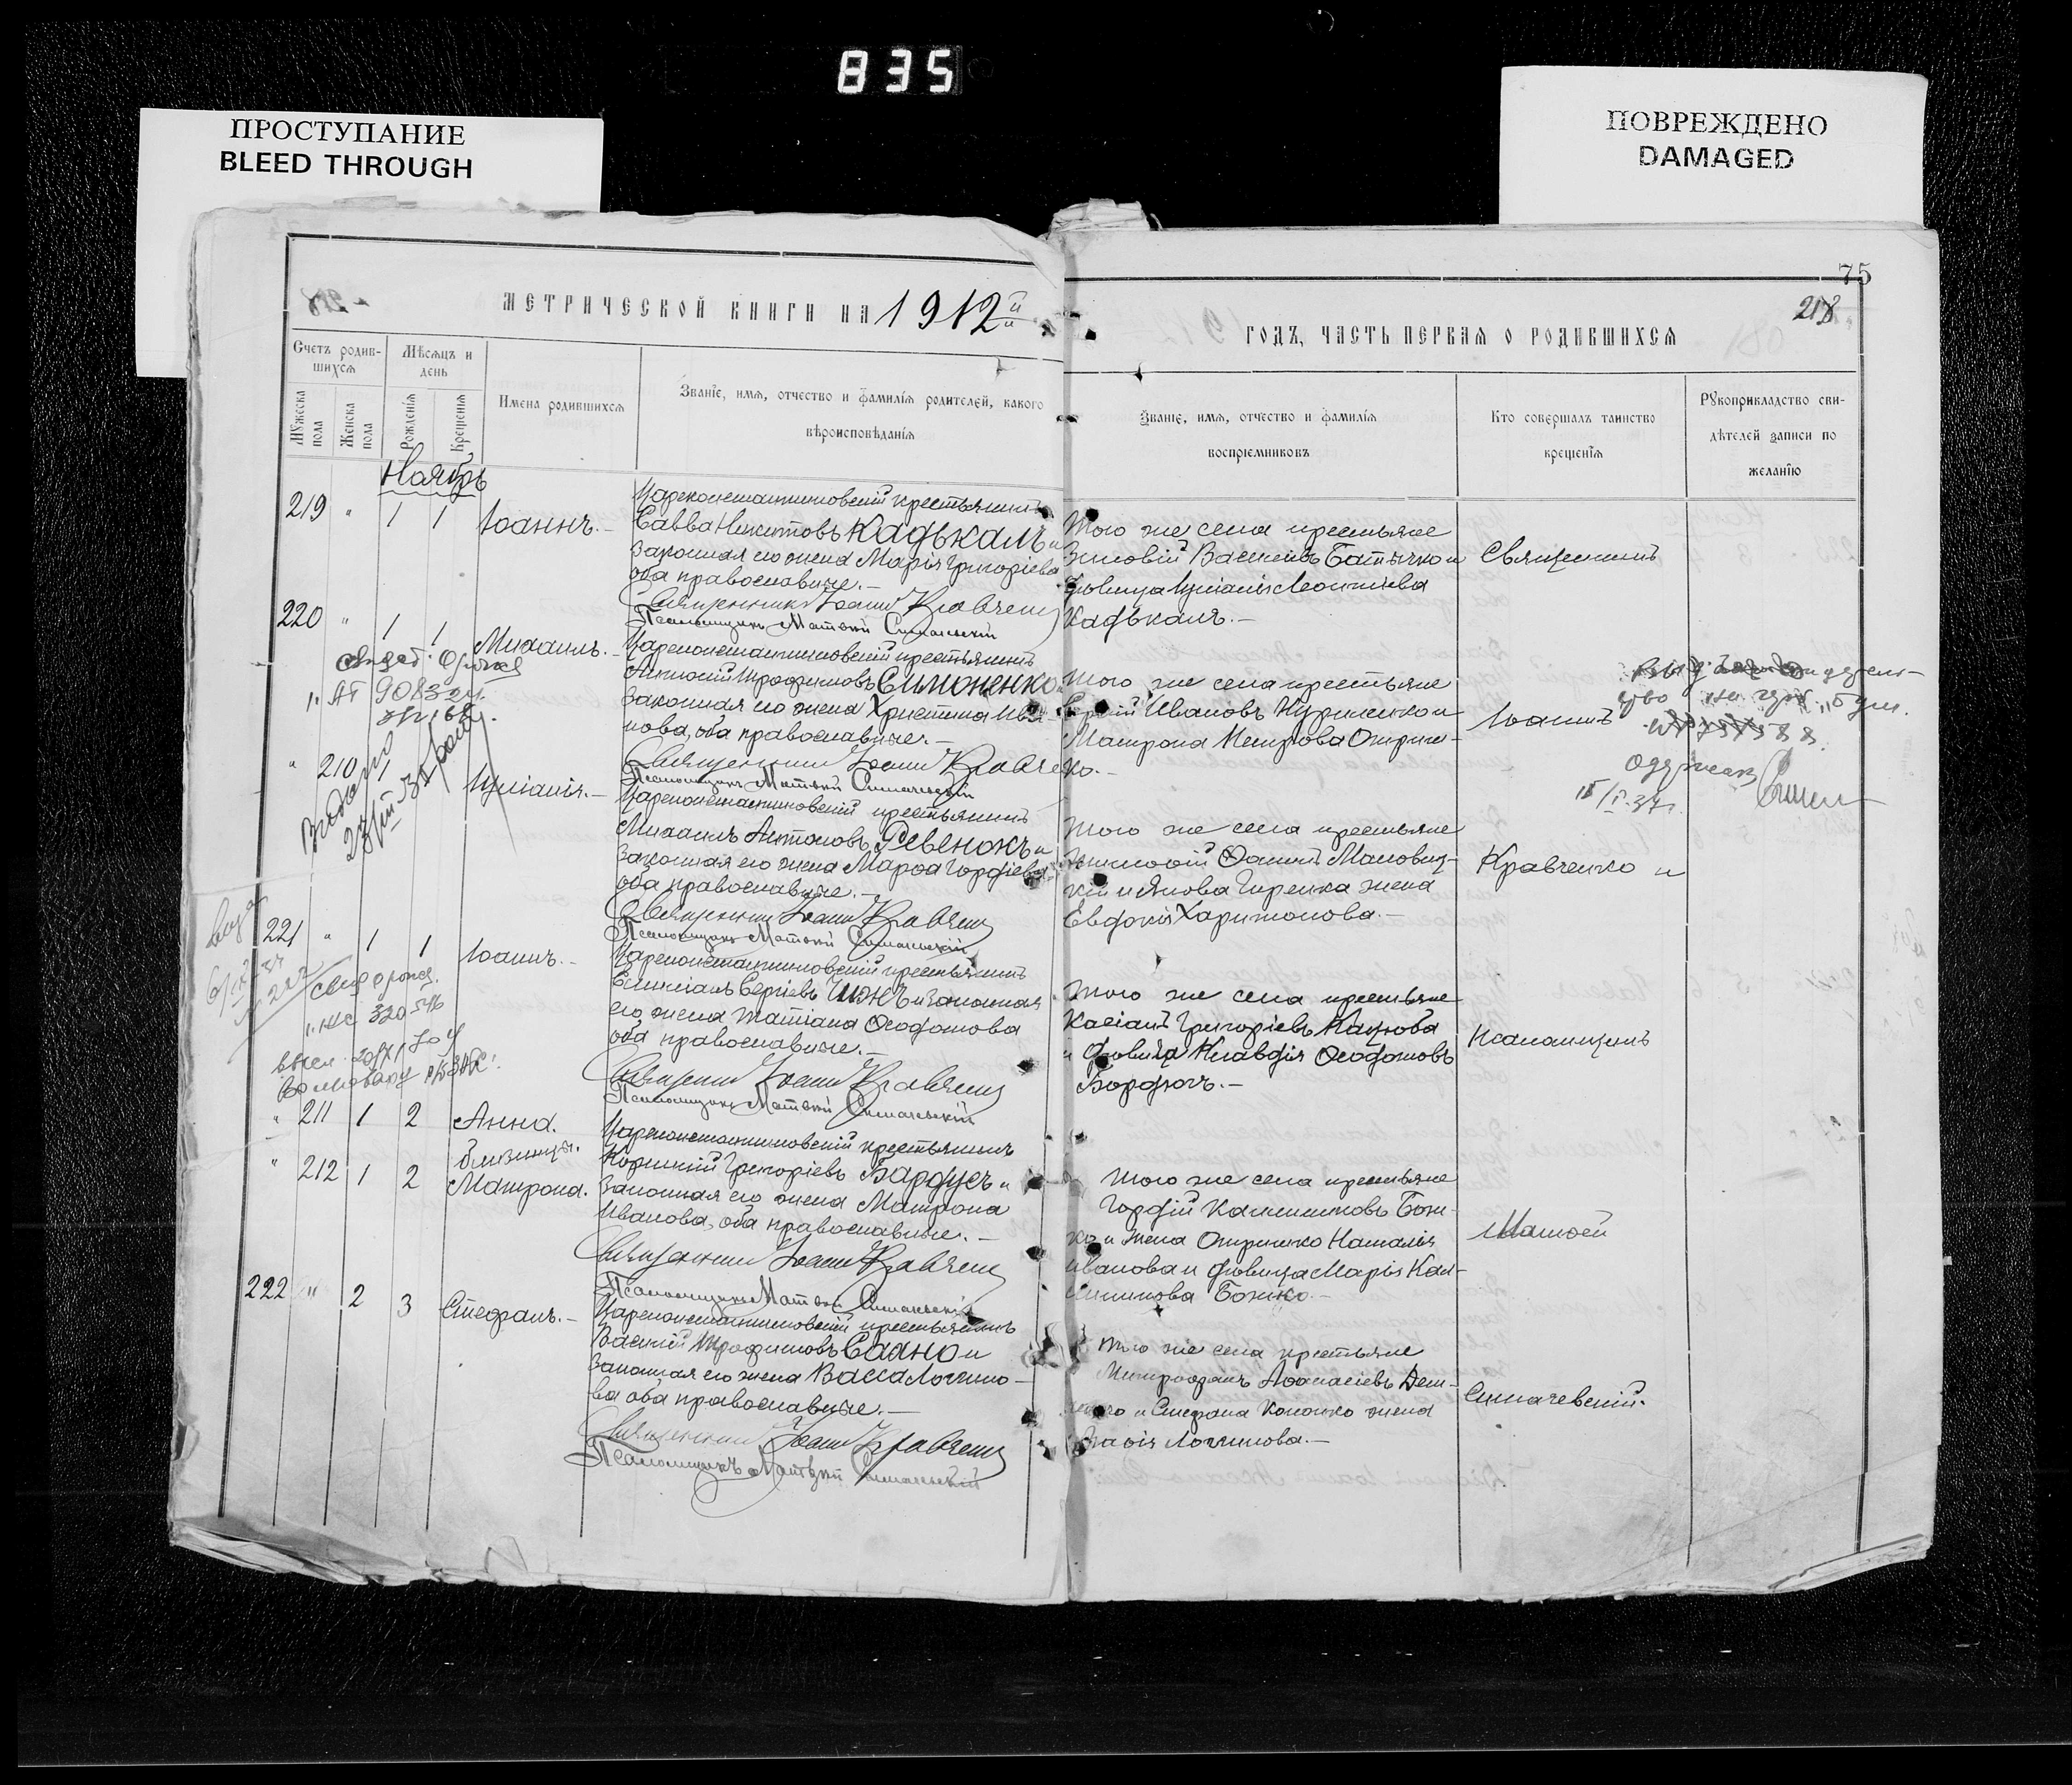 835
ПРОСТУПАНИЕ
BLEED THROUGH
ПОВРЕЖДЕНО
DAMAGED
75
218
МЕТРИЧЕСКОЙ КНИГИ НА 1912й
ГОДЪ, ЧАСТЬ ПЕРВАЯ О РОДИВШИХСЯ
Счетъ родив-
шихся
Мѣсяцъ и
день
Мужеска
пола
Женска
пола
Рожденія
Крещенія
Имена родившихся
Званіе, имя, отчество и фамилія родителей, какого
вѣроисповѣданія
Званіе, имя, отчество и фамилія
воспріемниковъ
Кто совершалъ таинство
крещенія
Рукоприкладство сви-
дѣтелей записи по
желанію
Ноябрь
219 " 1 1 Іоаннъ.-
Цареконстантиновскій крестьянинъ
Савва Никитовъ Кадькалъ и
законная его жена Марія Григоріева
оба православные.-
Священникъ Іоаннъ Кравченко
Псаломщикъ Матѳей Симачевскій
Того же села крестьяне
Зиновій Васильевъ Батычко и
дѣвица Иуліанія Леонтіева
Кадькалъ.-
220 " 1 1 Михаилъ.-
Цареконстантиновскій крестьянинъ
Антоній Трофимовъ Симоненко и
законная его жена Христина Ива-
нова, оба православные.-
Священникъ Іоаннъ Кравченко
Псаломщикъ Матѳей Симачевскій
Того же села крестьяне
Сергій Ивановъ Куриленко и
Матрона Петрова Отриш-
ко.-
1. АТ 9083
" 210 1 1 Иуліанія.-
Цареконстантиновскій крестьянинъ
Михаилъ Антоновъ Ревенокъ и
законная его жена Марѳа Гордіева
оба православные.-
Священникъ Іоаннъ Кравченко
Псаломщикъ Матѳей Симачевскій
Того же села крестьяне
и Якова Гиренка жена
Евдокія Харитонова.-
221 " 1 1 Іоаннъ.-
Цареконстантиновскій крестьянинъ
Емиліанъ Сергіевъ Чижъ и законная
его жена Татіана Ѳеодотова
оба православные.-
Священникъ Іоаннъ Кравченко
Псаломщикъ Матѳей Симачевскій
Того же села крестьяне
Касіанъ Григоріевъ Кацюба
и дѣвица Клавдія Ѳеодотовъ
320546
" 211 1 2 Анна.
близнецы.
" 212 1 2 Матрона.
Цареконстантиновскій крестьянинъ
Корнилій Григоріевъ Бардусъ и
законная его жена Матрона
Иванова, оба православные.-
Священникъ Іоаннъ Кравченко
Псаломщикъ Матѳей Симачевскій
Того же села крестьяне
Гордій Каллиниковъ Бож-
ко и жена Отришко Наталія
Иванова и дѣвица Марія Кал-
линикова Божко.-
222 " 2 3 Стефанъ.-
Цареконстантиновскій крестьянинъ
Василій Трофимовъ Саано и
законная его жена Васса Логино-
ва оба православные.-
Священникъ Іоаннъ Кравченко
Псаломщикъ Матѳей Симачевскій
Того же села крестьяне
Митрофанъ Аѳанасіевъ
и Стефана Кононко жена
Логинова.-
Священникъ
Іоаннъ
Кравченко и
Псаломщикъ
Матѳей
Симачевскій.